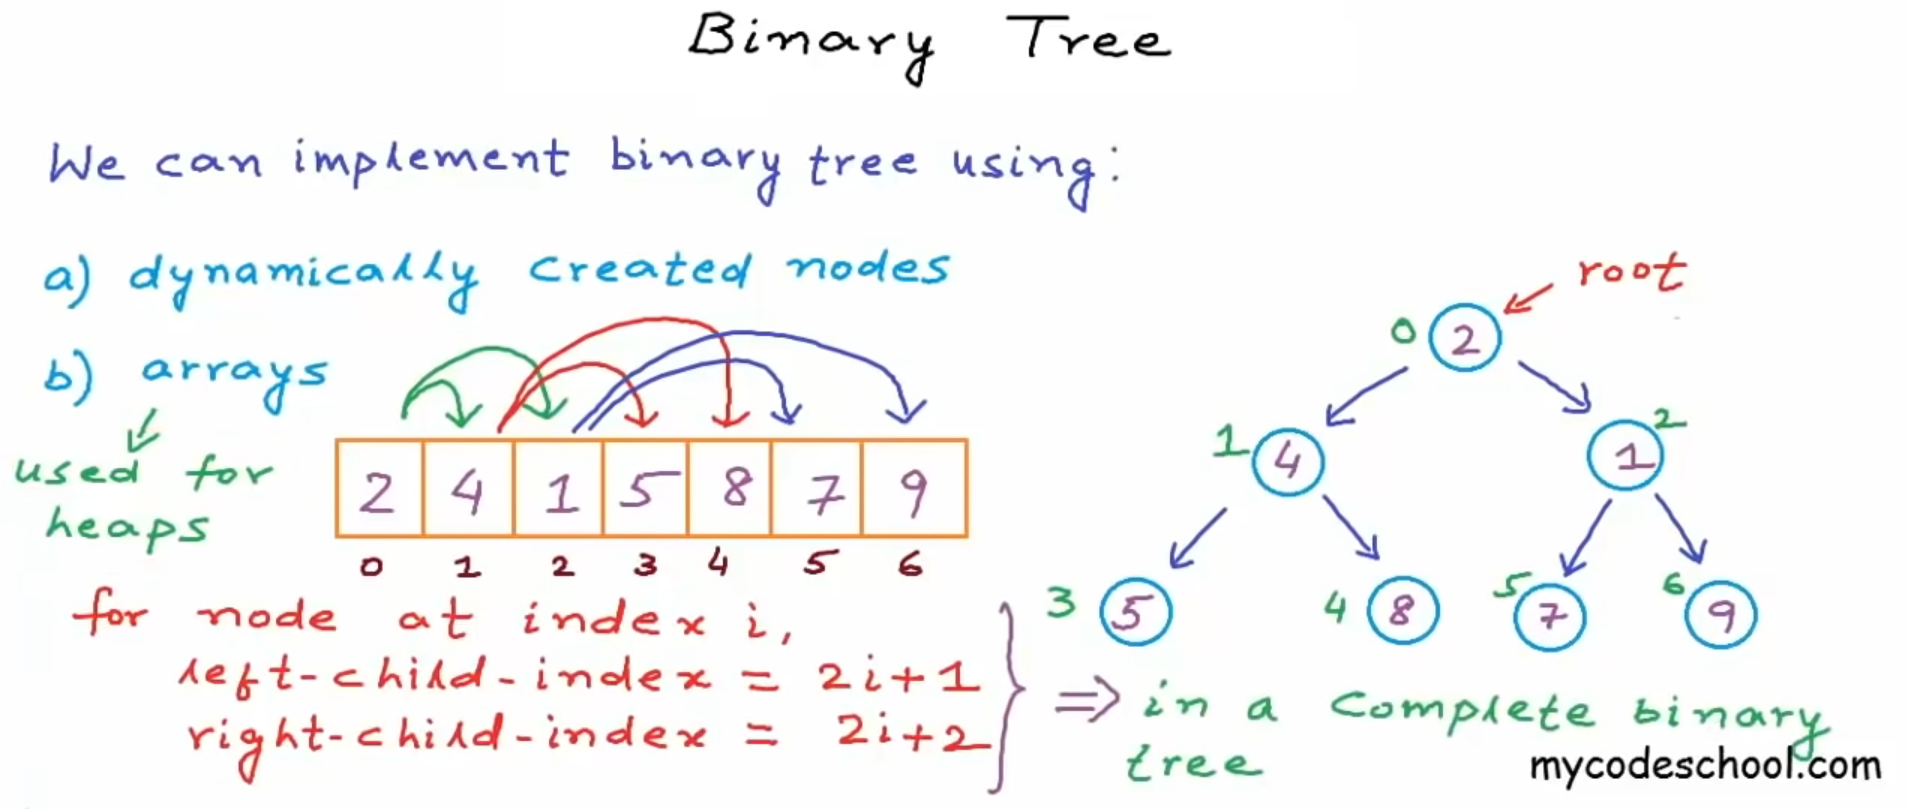 Binary Tree
We can implement binary tree using:
a) dynamically created nodes
b) arrays
used for
heaps
2 4 1 5 8 7 9
0 1 2 3 4 5 6
for node at index i,
left-child-index = 2i+1
right-child-index = 2i+2
root
0 2
1 4 1 2
3 5 4 8 5 7 6 9
⇒ in a complete binary
tree
mycodeschool.com